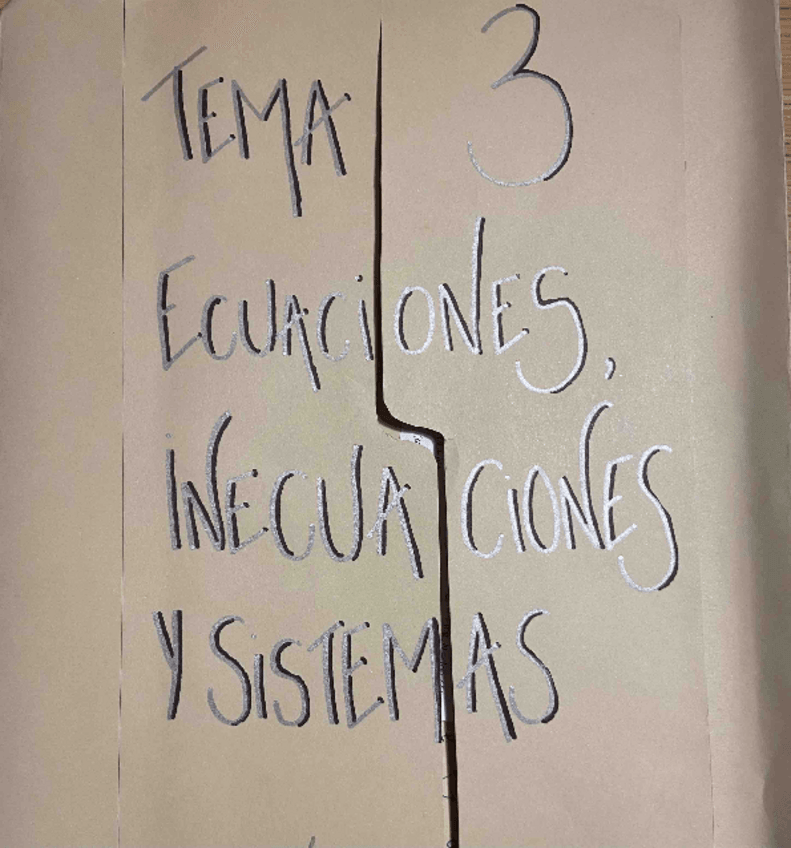 TEMA 3
ECUACIONES,
INECUACIONES
Y SISTEMAS